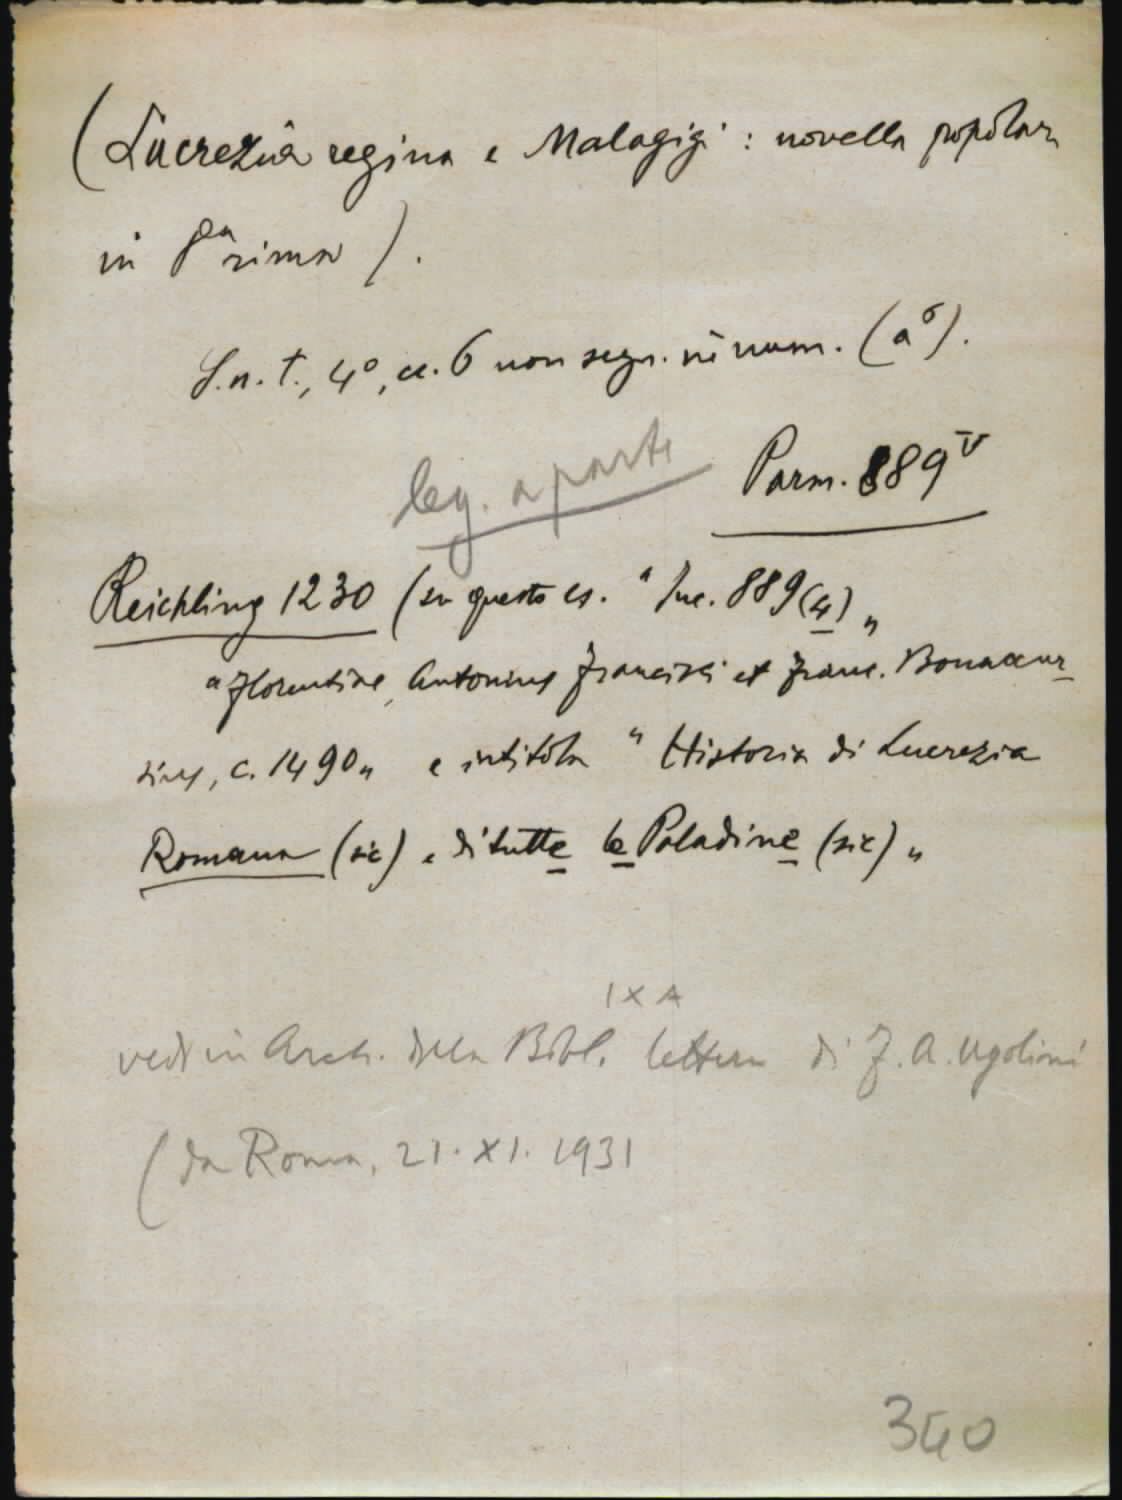 (Lucrezia regina e Malagigi : novella popolare
in 8ª rima ).
S.n.t., 4º, cc. 6 non segn. nè num. (a⁶).
leg. a parte
Parm. 889ᵛ
Reichling 1230 (su questo es. "Inc. 889(4)„
"Florentiae, Antonius Francisci et Franc. Bonaccur-
sius, c. 1490„ e intitola "Historia di Lucrezia
Romana (sic) e di tutte le Paladine (sic)„
IX A
vedi in Arch. della Bibl. lettera di F. A. Ugolini
(da Roma, 21. XI. 1931
340